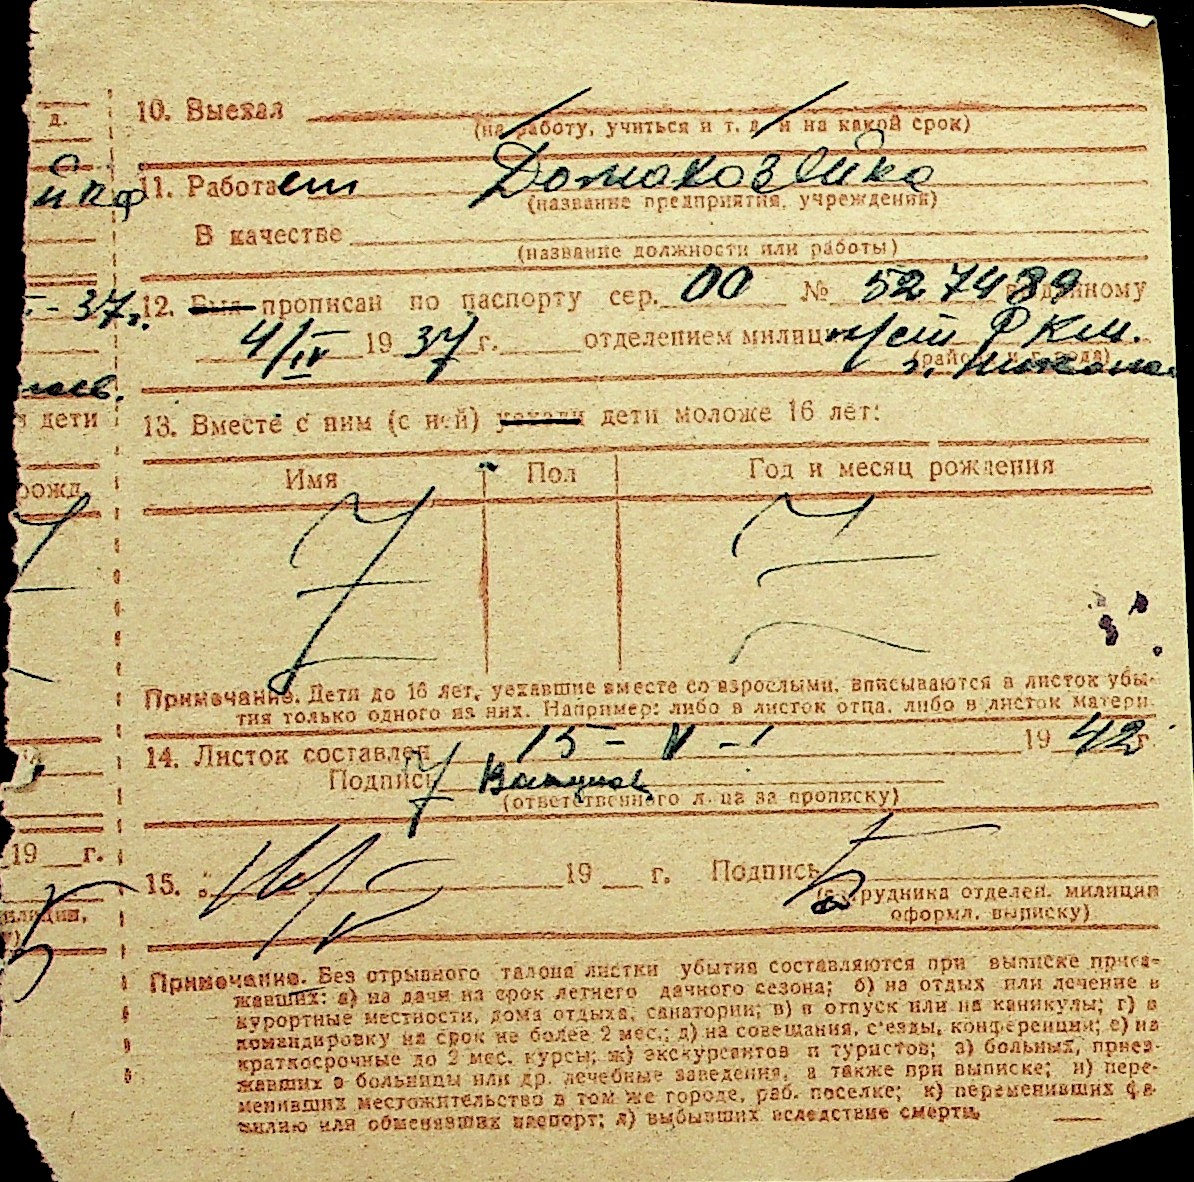 д.
10. Выехал
(на работу, учиться и т. д. и на какой срок)
йка
11. Работает Домахозяйка
(название предприятия, учреждения)
В качестве
(название должности или работы)
- 37г.
12. Был прописан по паспорту сер. 00 № 527489 выданному
4/IV 1937 г. отделением милиции 1/ст РКМ.
(район и города)
дети
13. Вместе с ним (с ней) уехали дети моложе 16 лет:
рожд.
Имя Пол Год и месяц рождения
Примечание. Дети до 16 лет, уехавшие вместе со взрослыми, вписываются в листок убы-
тия только одного из них. Например: либо в листок отца, либо в листок матери.
14. Листок составлен 15 - V - 1942 г.
Подпись
(ответственного лица за прописку)
19 г.
15. 19 г. Подпись
милиции,
(сотрудника отделен. милиции
оформл. выписку)
Примечание. Без отрывного талона листки убытия составляются при выписке приез-
жавших: а) на дачи на срок летнего дачного сезона; б) на отдых или лечение в
курортные местности, дома отдыха, санатории; в) в отпуск или на каникулы; г) в
командировку на срок не более 2 мес.; д) на совещания, с'езды, конференции; е) на
краткосрочные до 2 мес. курсы; ж) экскурсантов и туристов; з) больных, приез-
жавших в больницы или др. лечебные заведения, а также при выписке; и) пере-
менивших местожительство в том же городе, раб. поселке; к) переменивших фа-
милию или обменявших паспорт; л) выбывших вследствие смерти.